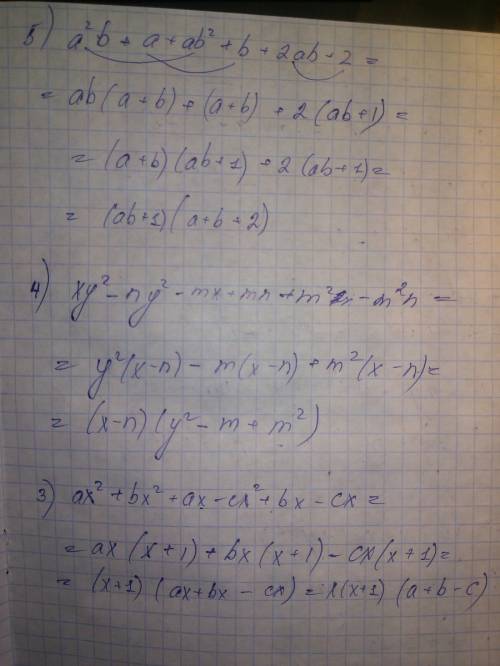 5) a²b + a + ab² + b + 2ab + 2 =
= ab(a+b) + (a+b) + 2(ab+1) =
= (a+b)(ab+1) + 2(ab+1) =
= (ab+1)(a+b+2)
4) xy² - ny² - mx + mn + m²x - m²n =
= y²(x-n) - m(x-n) + m²(x-n) =
= (x-n)(y² - m + m²)
3) ax² + bx² + ax - cx² + bx - cx =
= ax(x+1) + bx(x+1) - cx(x+1) =
= (x+1)(ax+bx-cx) = x(x+1)(a+b-c)